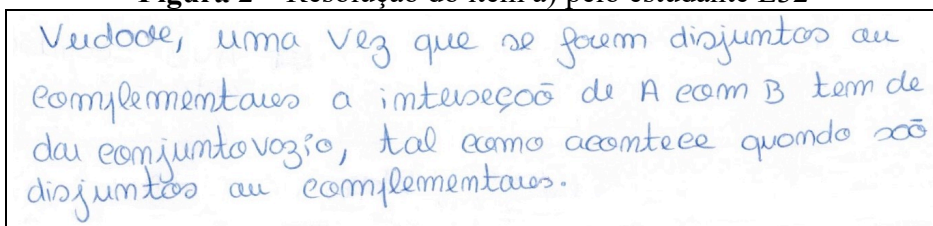 Figura 2 – Resolução do item a) pelo estudante E32
Verdade, uma vez que se forem disjuntos ou
complementares a interseção de A com B tem de
dar conjunto vazio, tal como acontece quando são
disjuntos ou complementares.